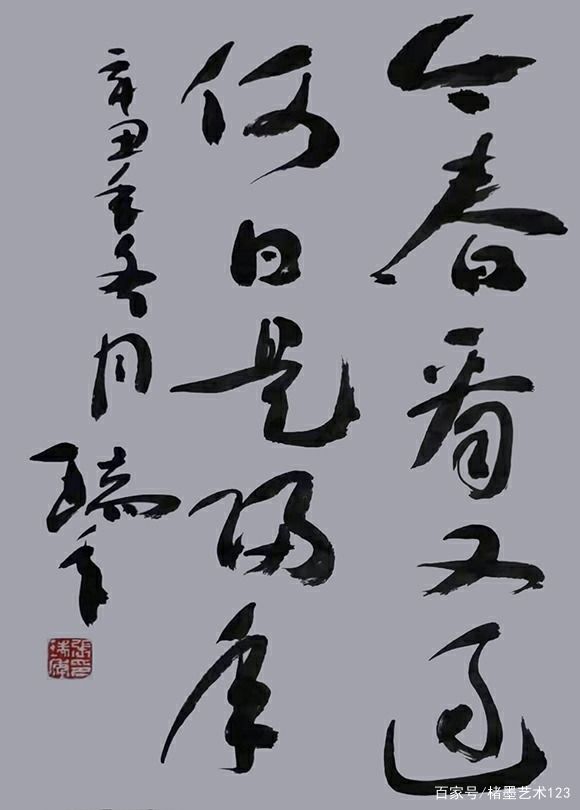 今春看又過
何日是歸年
辛丑年冬月 瑞
百家号/楮墨艺术123